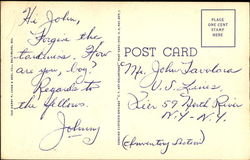 Hi John,
Forgive the
tardiness. How
are you, boy?
Regards to
the fellows.
Johnny
POST CARD
PLACE
ONE CENT
STAMP
HERE
Mr. John Tavolara
U.S. Lines,
Pier 59 North River
N.Y. - N.Y.
(Inventory Section)